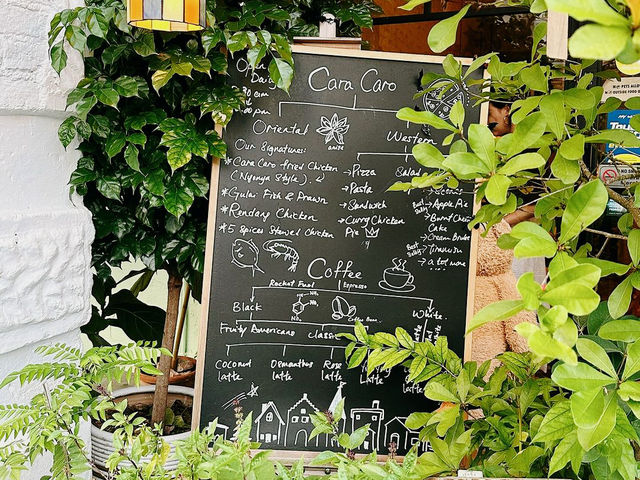 Open
Daily
Cara Caro
Oriental
anise
Western
Our Signature:
*Cara Caro fried Chicken
(Nyonya Style).
*Gulai Fish & Prawn
*Rendang Chicken
*5 Spices Stewed Chicken
→Pizza
→Pasta
→Sandwich
→Curry Chicken
Pie
Salad
→Apple Pie
→Burnt Cheese
Cake
→Cream Brulee
→Tiramisu
→a lot more
Coffee
Rocket Fuel
Espresso
Black
Coffee Bean
White
Fruity Americano
Classic
Coconut
latte
Osmanthus
latte
Rose
latte
Latte
latte